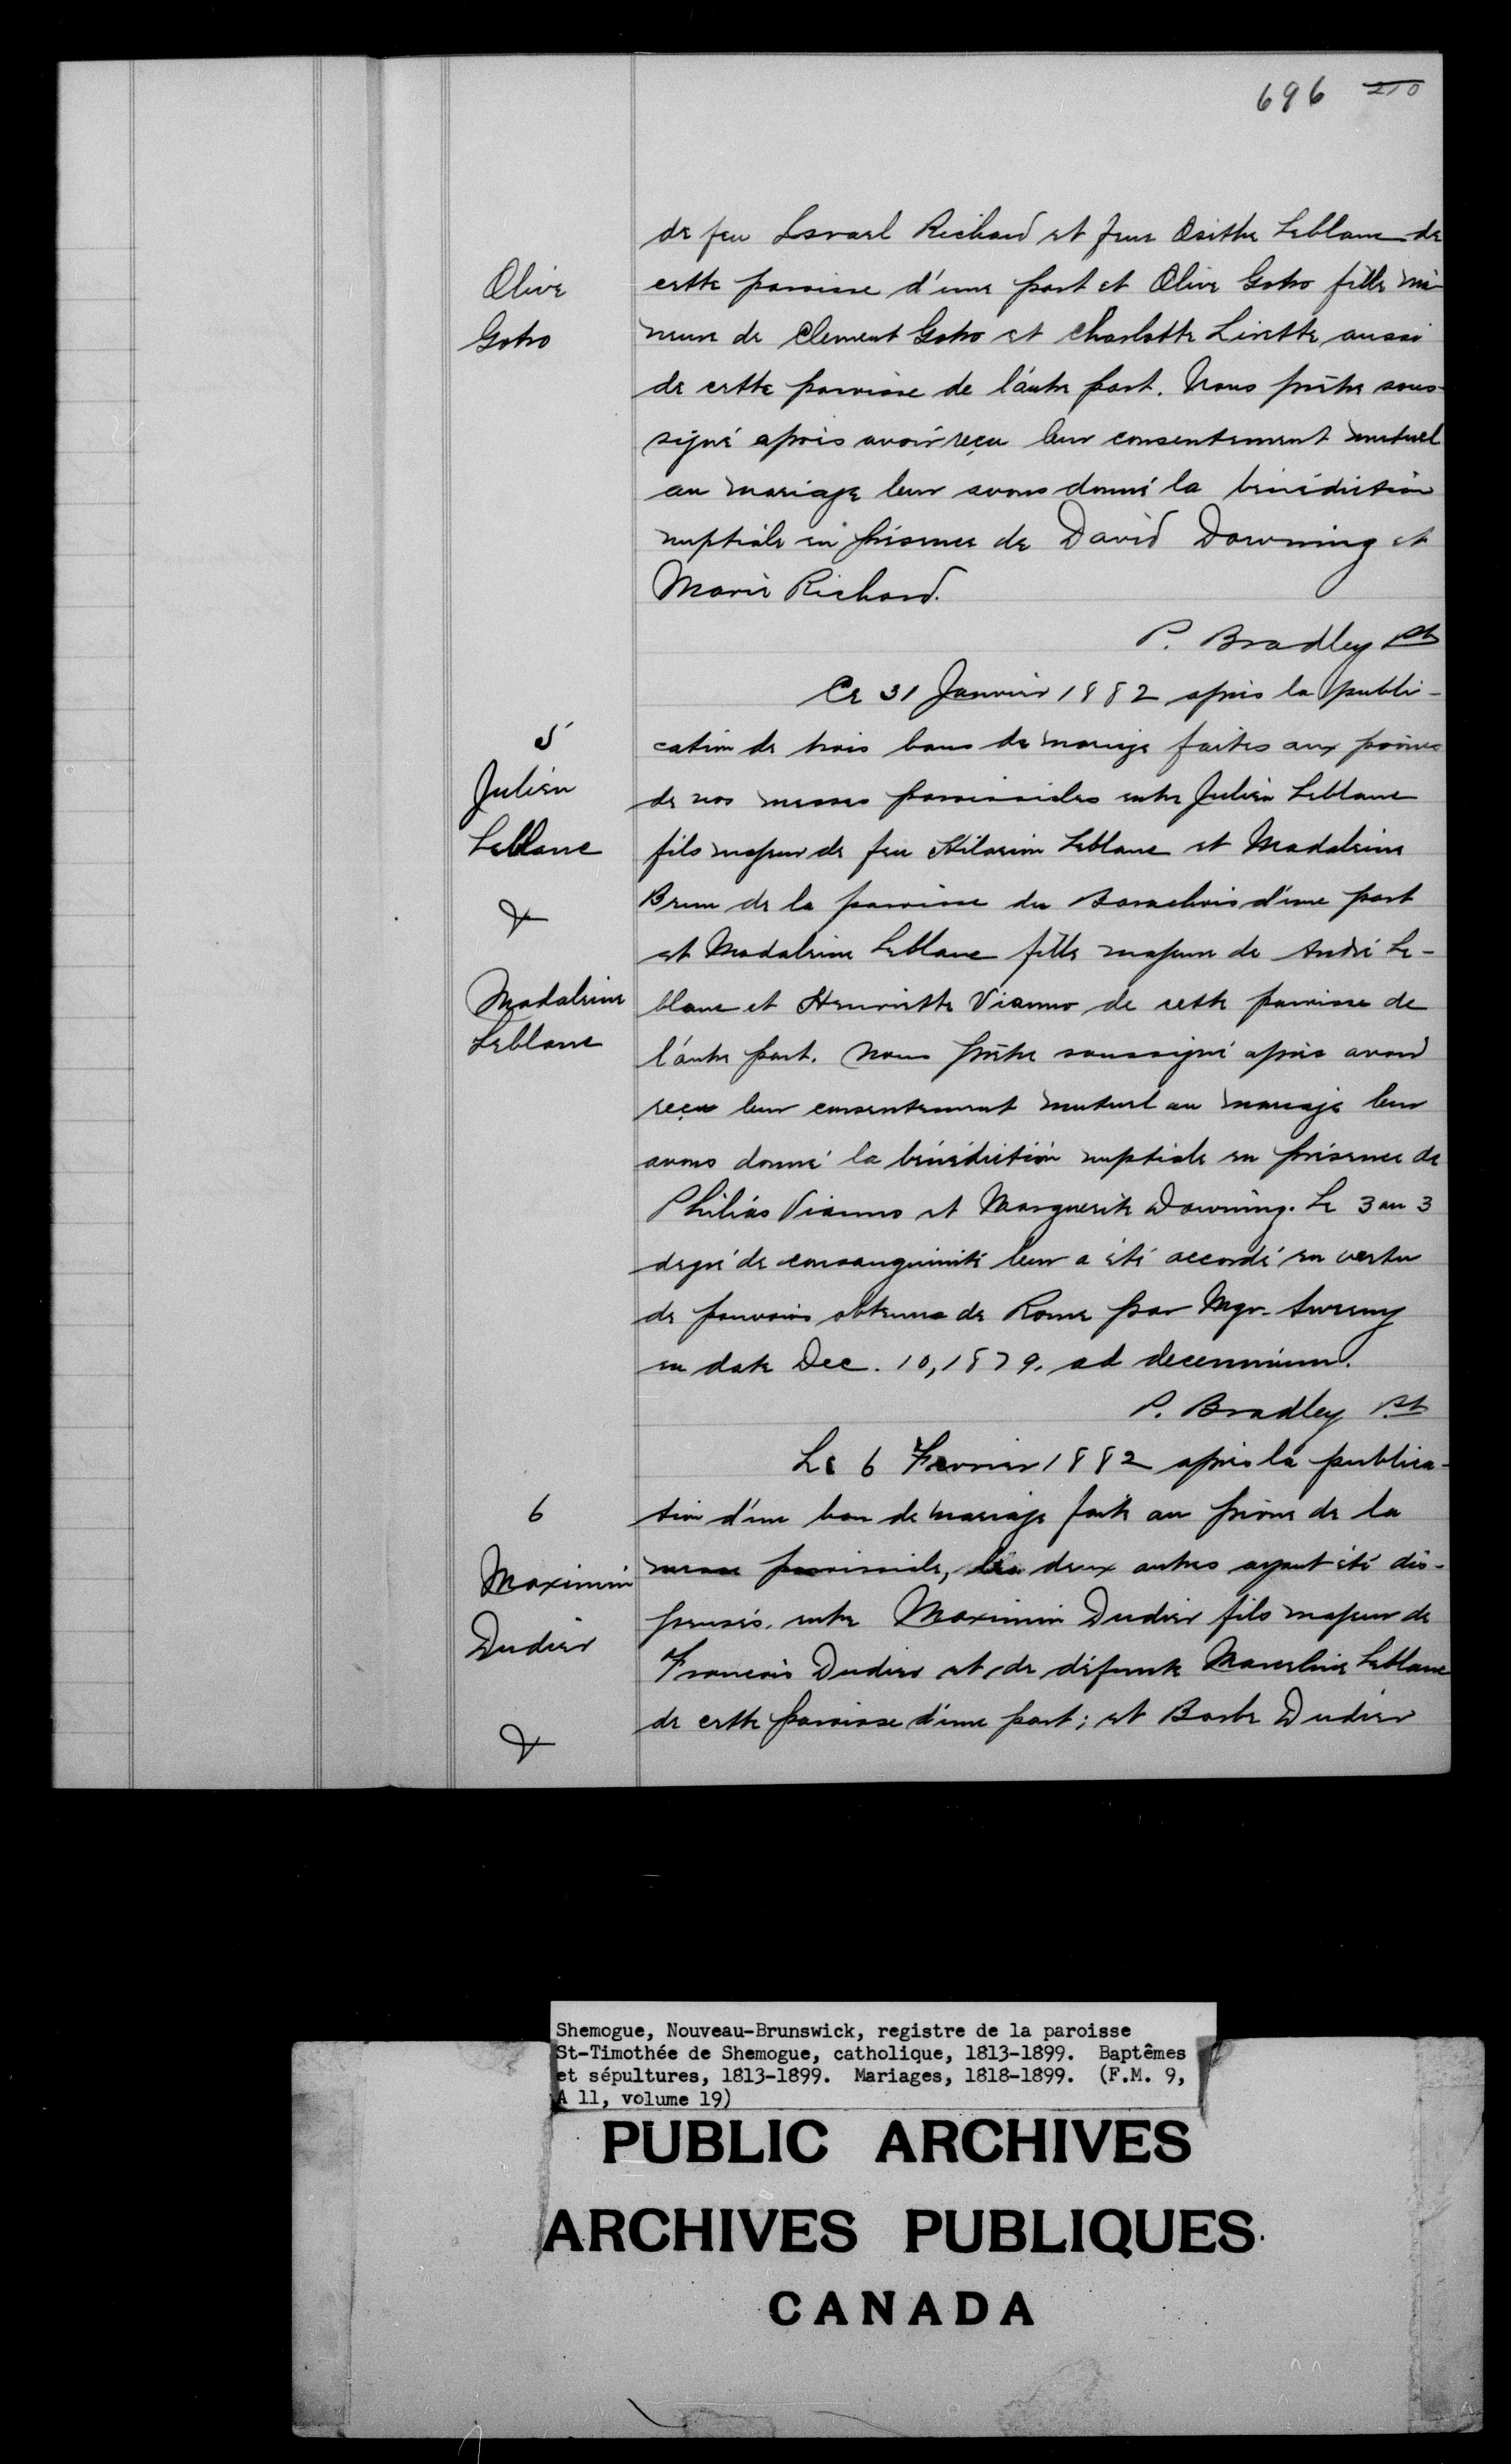 696 210
de feu Israel Richard et feue Osithe Leblanc de
Olive
cette paroisse d'une part et Olive Goto fille mi-
Goto
neure de Clement Goto et Charlotte Lirette aussi
de cette paroisse de l'autre part. Nous prêtre sous-
signé après avoir reçu leur consentement mutuel
au mariage leur avons donné la bénédiction
nuptiale en présence de David Downing et
Marie Richard.
P. Bradley Pt
Ce 31 Janvier 1882 après la publi-
5
cation de trois bans de mariage faites aux prônes
Julien
de nos messes paroissiales entre Julien Leblanc
Leblanc
fils majeur de feu Hilarion Leblanc et Madaleine
&
Brun de la paroisse du Barachois d'une part
et Madaleine Leblanc fille majeure de André Le-
Madaleine
blanc et Henriette Vianno de cette paroisse de
Leblanc
l'autre part. Nous prêtre soussigné après avoir
reçu leur consentement mutuel au mariage leur
avons donné la bénédiction nuptiale en présence de
Philias Vianno et Marguerite Downing. Le 3 au 3
degré de consanguinité leur a été accordé en vertu
de pouvoirs obtenus de Rome par Mgr. Sweeny
en date Dec. 10, 1879. ad decennium.
P. Bradley Pt
Le 6 Fevrier 1882 après la publica-
6
tion d'un ban de mariage faite au prône de la
Maximin
messe paroissiale, les deux autres ayant été dis-
pensés, entre Maximin Dudier fils majeur de
Dudier
François Dudier et de défunte Marceline Leblanc
de cette paroisse d'une part; et Barbe Dudier
&
Shemogue, Nouveau-Brunswick, registre de la paroisse
St-Timothée de Shemogue, catholique, 1813-1899. Baptêmes
et sépultures, 1813-1899. Mariages, 1818-1899. (F.M. 9,
A 11, volume 19)
PUBLIC ARCHIVES
ARCHIVES PUBLIQUES
CANADA